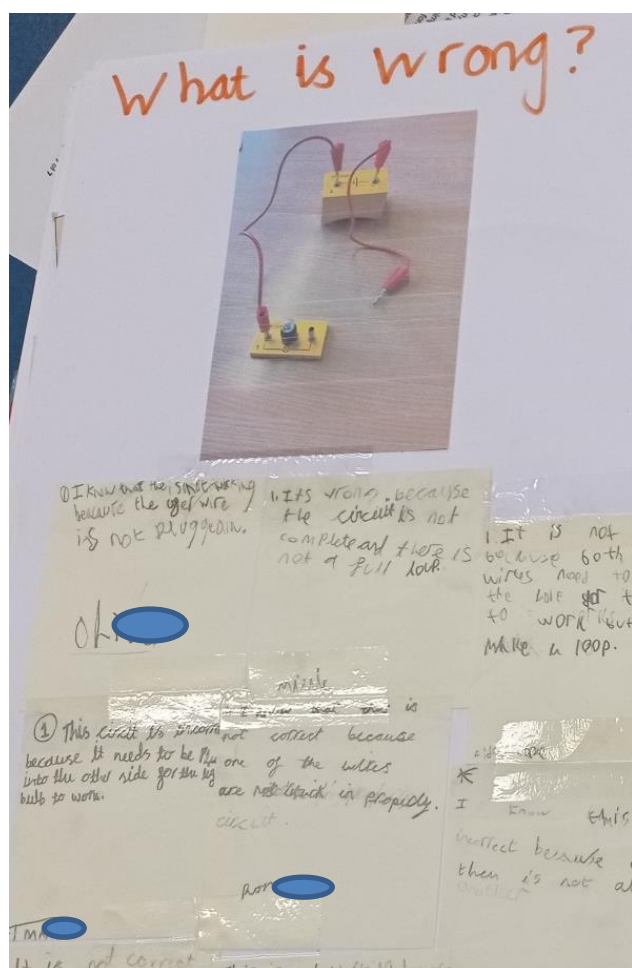 What is wrong?
① I know that the is not working
because the wire
is not pluggedin.
1. Its wrong. because
the circuit is not
complete and there is
not a full loop.
1. It is not
because both
wires need to
the hole for t
to work but
make a loop.
① This circit is
because it needs to be
into the other side for the
bulb to work.
I know that this is
not correct because
one of the wires
are not stuck in properly.
circuit.
I know this
incorrect because
then is not a
another
It is not correct